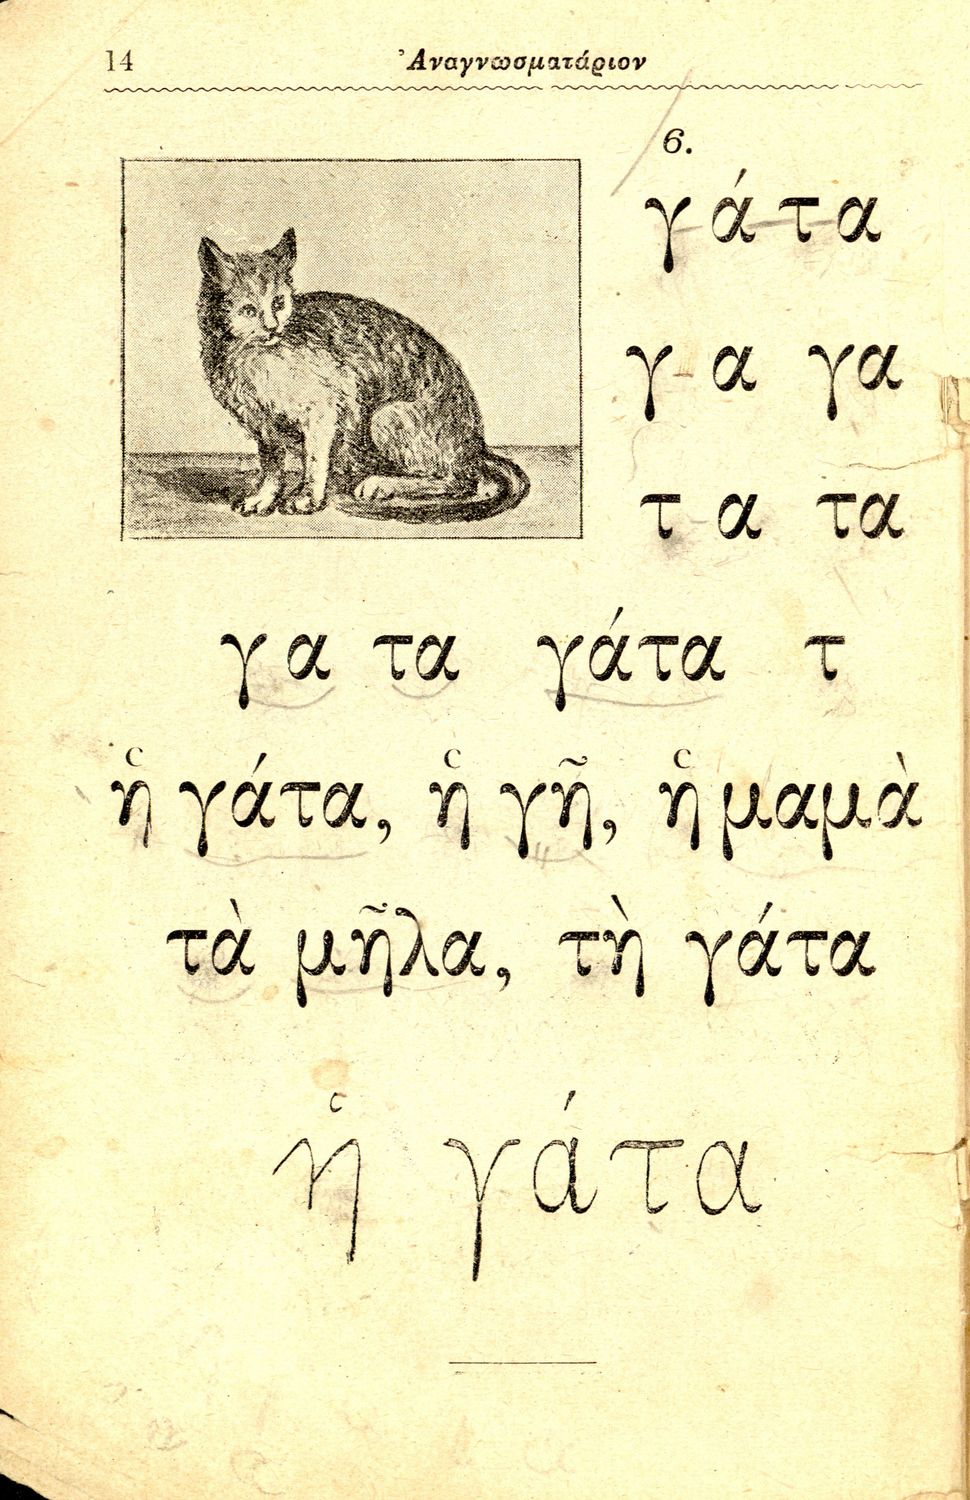 14 Ἀναγνωσματάριον
6.
γ ά τ α
γ α γα
τ α τα
γ α τα γάτα τ
ἡ γάτα, ἡ γῆ, ἡ μαμὰ
τὰ μῆλα, τὴ γάτα
ἡ γάτα